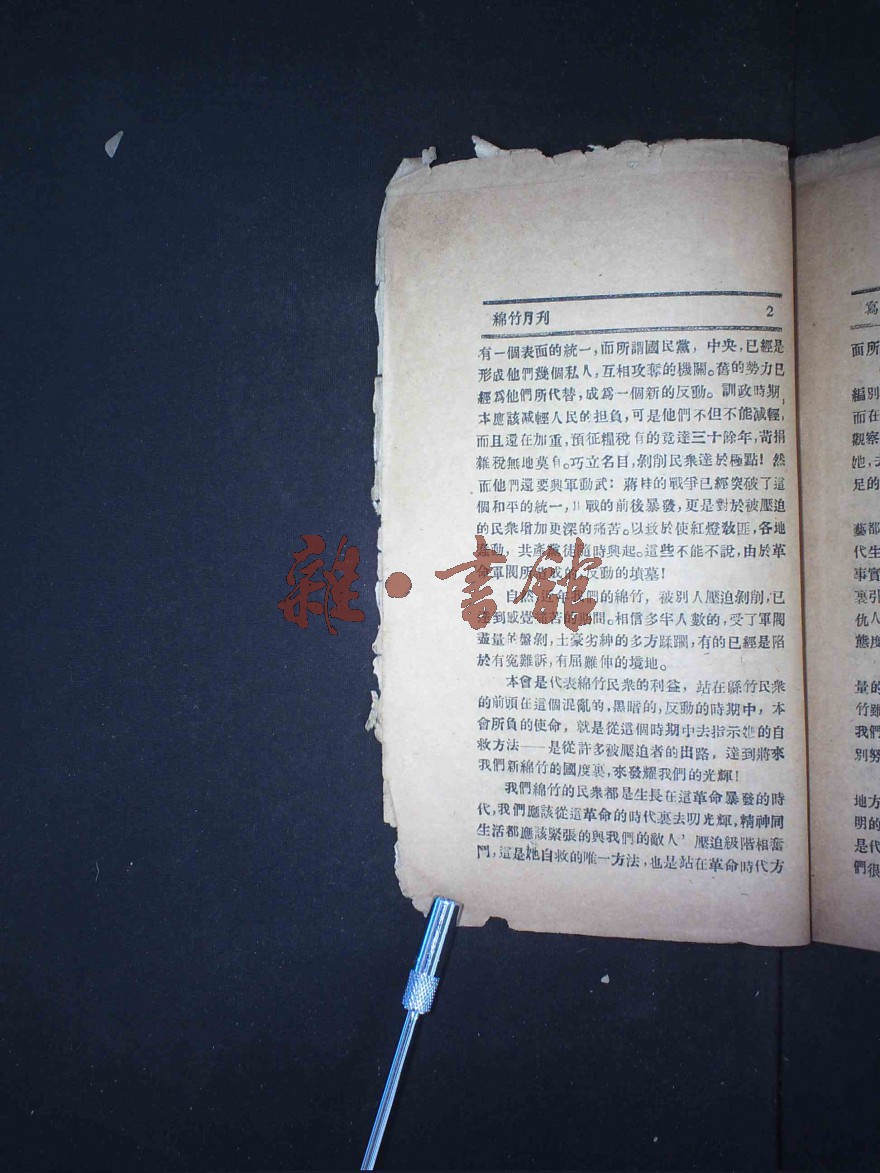 綿竹月刊 2
有一個表面的統一,而所謂國民黨,中央,已經是
形成他們幾個私人,互相攻奪的機關。舊的勢力已
經爲他們所代替,成爲一個新的反動。訓政時期,
本應該减輕人民的担負,可是他們不但不能減輕,
而且還在加重,預征糧稅有的竟達三十餘年,苛捐
雜稅無地莫有。巧立名目,剝削民衆達於極點!然
而他們還要興軍動武:蔣桂的戰爭已經突破了這
個和平的統一,戰的前後暴發,更是對於被壓迫
的民衆增加更深的痛苦。以致於使紅燈敎匪,各地
動,共產黨徒隨時興起。這些不能不說,由於革
命軍閥所造成的,反動的墳墓!
自然,近年我們的綿竹,被別人壓迫剝削,已
達到感覺痛苦的期間。相信多半人數的,受了軍閥
盡量的盤剝,土豪劣紳的多方蹂躪,有的已經是陷
於有寃難訴,有屈難伸的境地。
本會是代表綿竹民衆的利益,站在縣竹民衆
的前頭在這個混亂的,黑暗的,反動的時期中,本
會所負的使命,就是從這個時期中去指示她的自
救方法——是從許多被壓迫者的出路,達到將來
我們新綿竹的國度裏,來發耀我們的光輝!
我們綿竹的民衆都是生長在這革命暴發的時
代,我們應該從這革命的時代裏去叨光輝,精神同
生活都應該緊張的與我們的敵人'壓迫級階相奮
鬥,這是她自救的唯一方法,也是站在革命時代方
寫
面所
編別
而在
觀察
她,
足的
藝都
代生
事實
裏引
仇人
態度
量的
竹雖
我們
別努
地方
明的
是代
們很
雜·書館